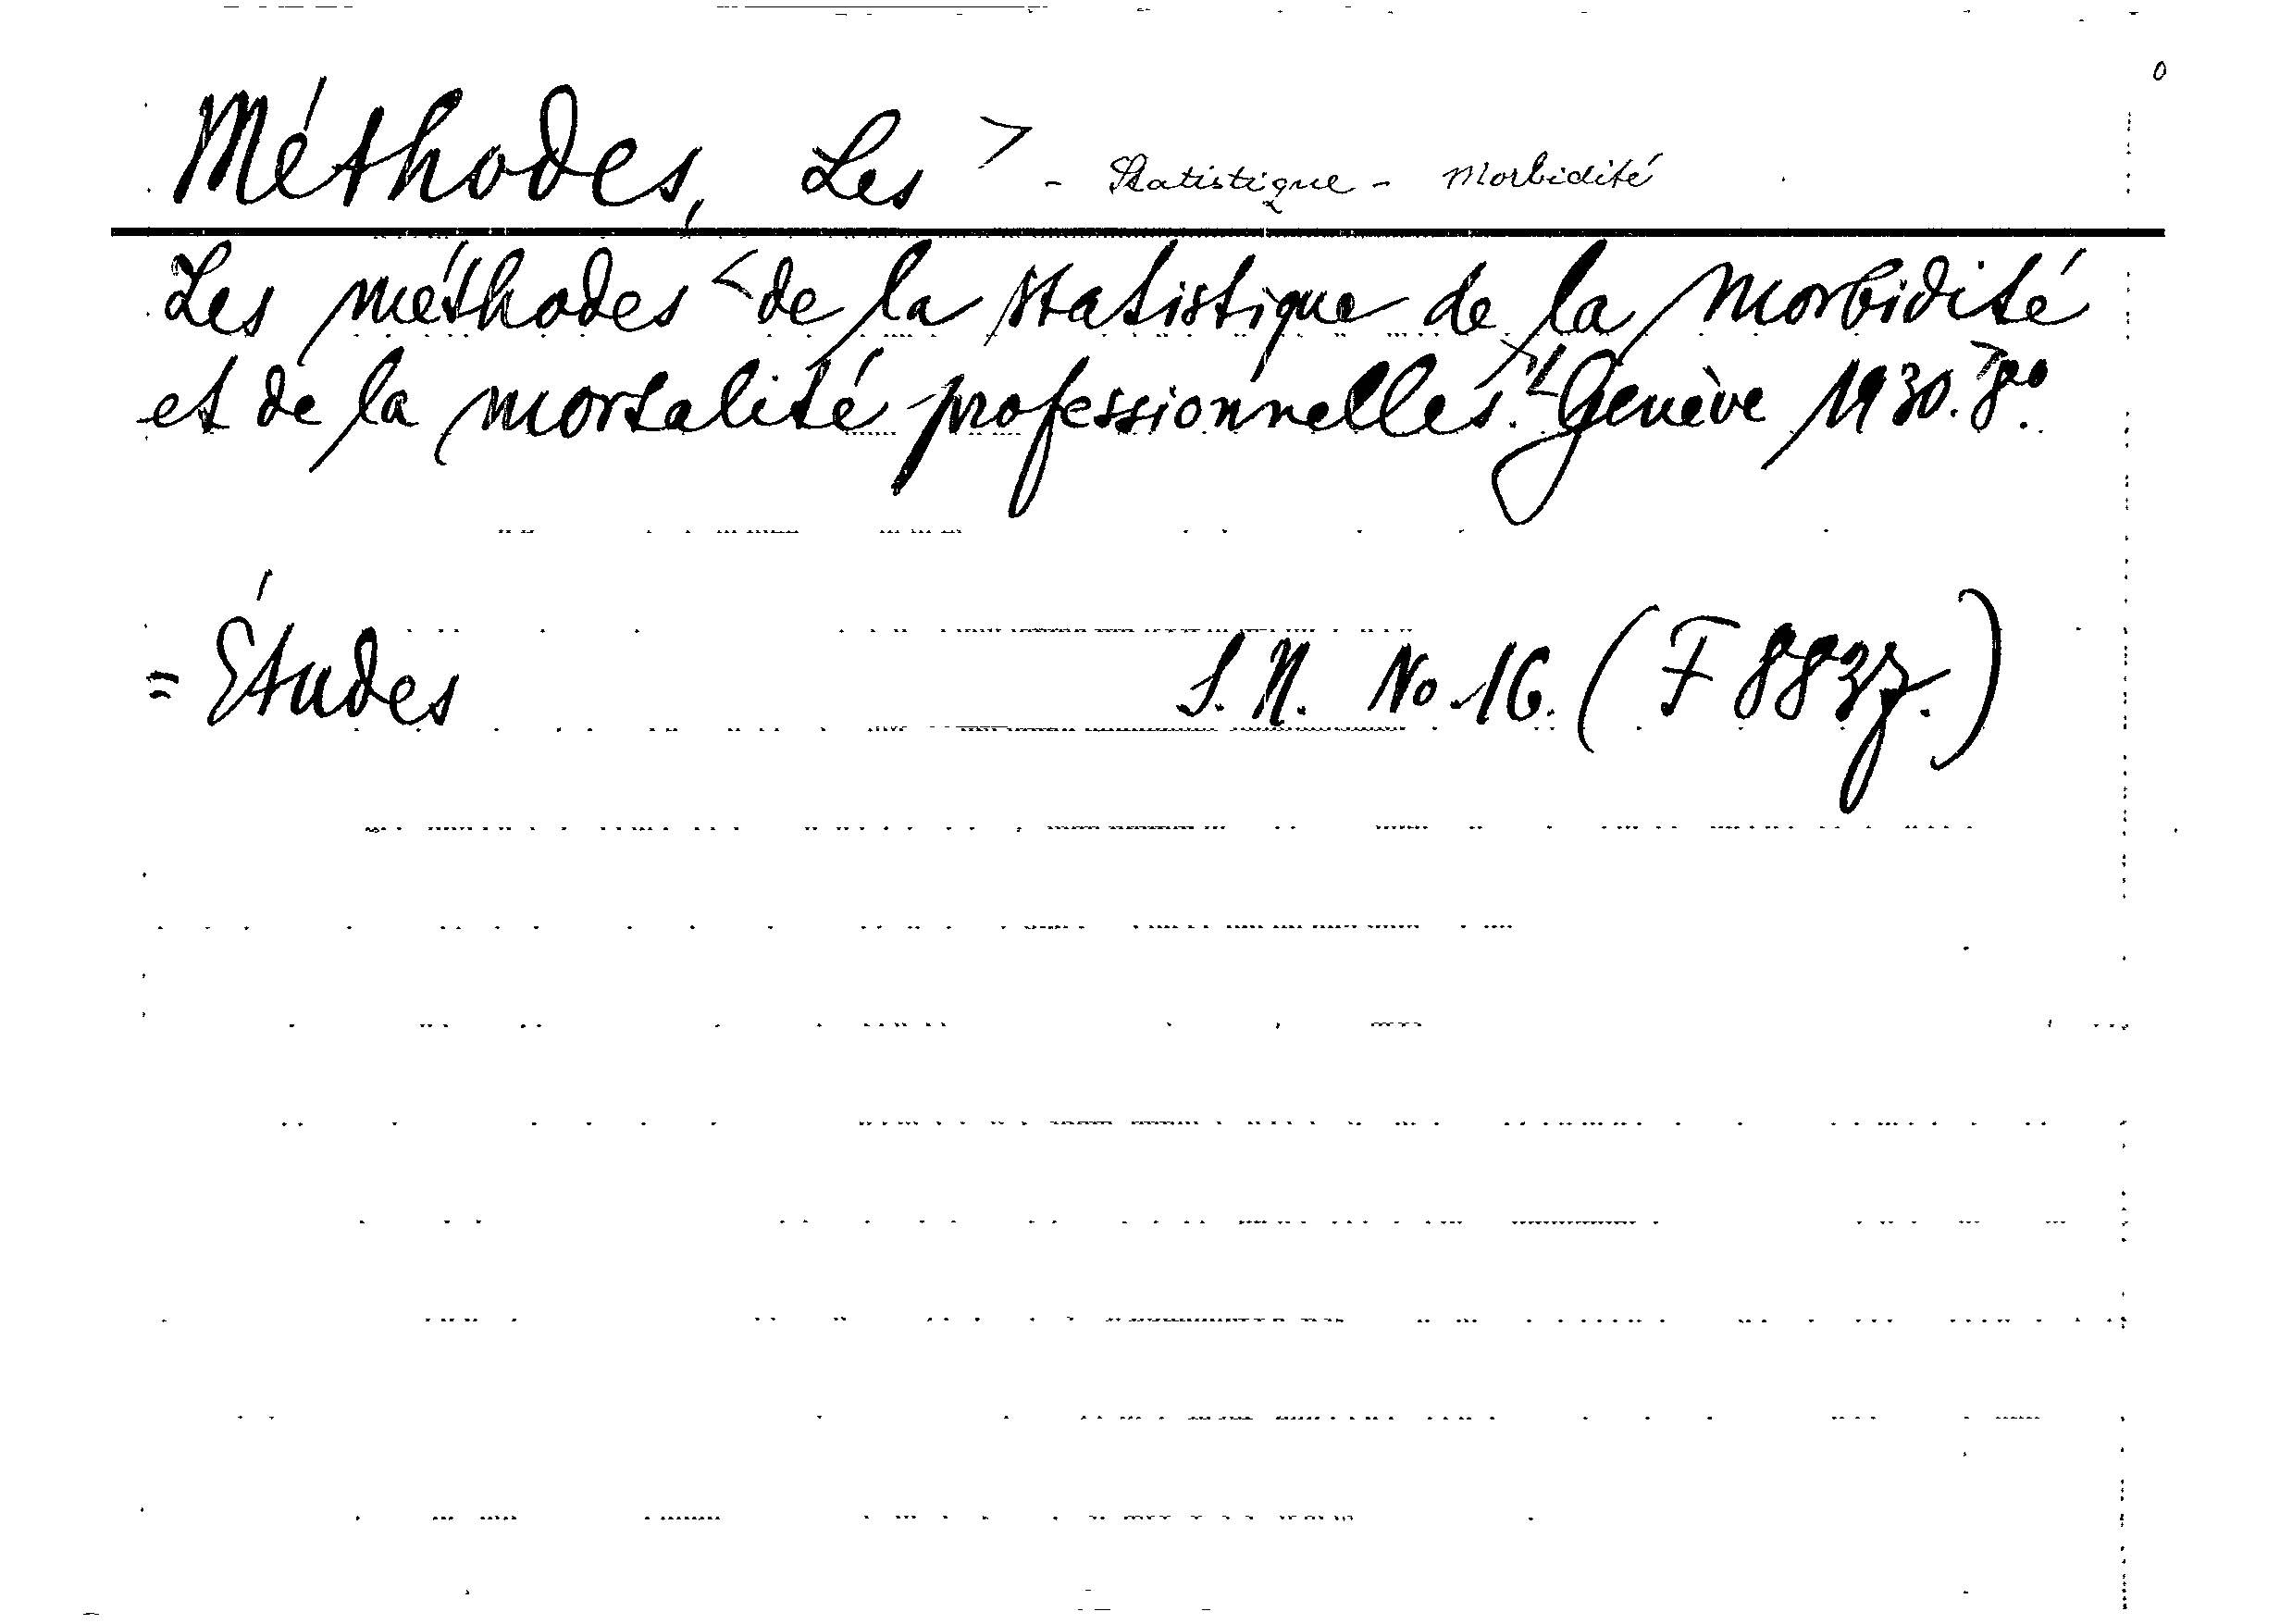 Méthodes, Les > - Statistique - Morbidité
Les méthodes < de la statistique de la morbidité
et de la mortalité professionnelles. Genève 1930. 8°.
= Études S. N. No. 16. (F 8837.)